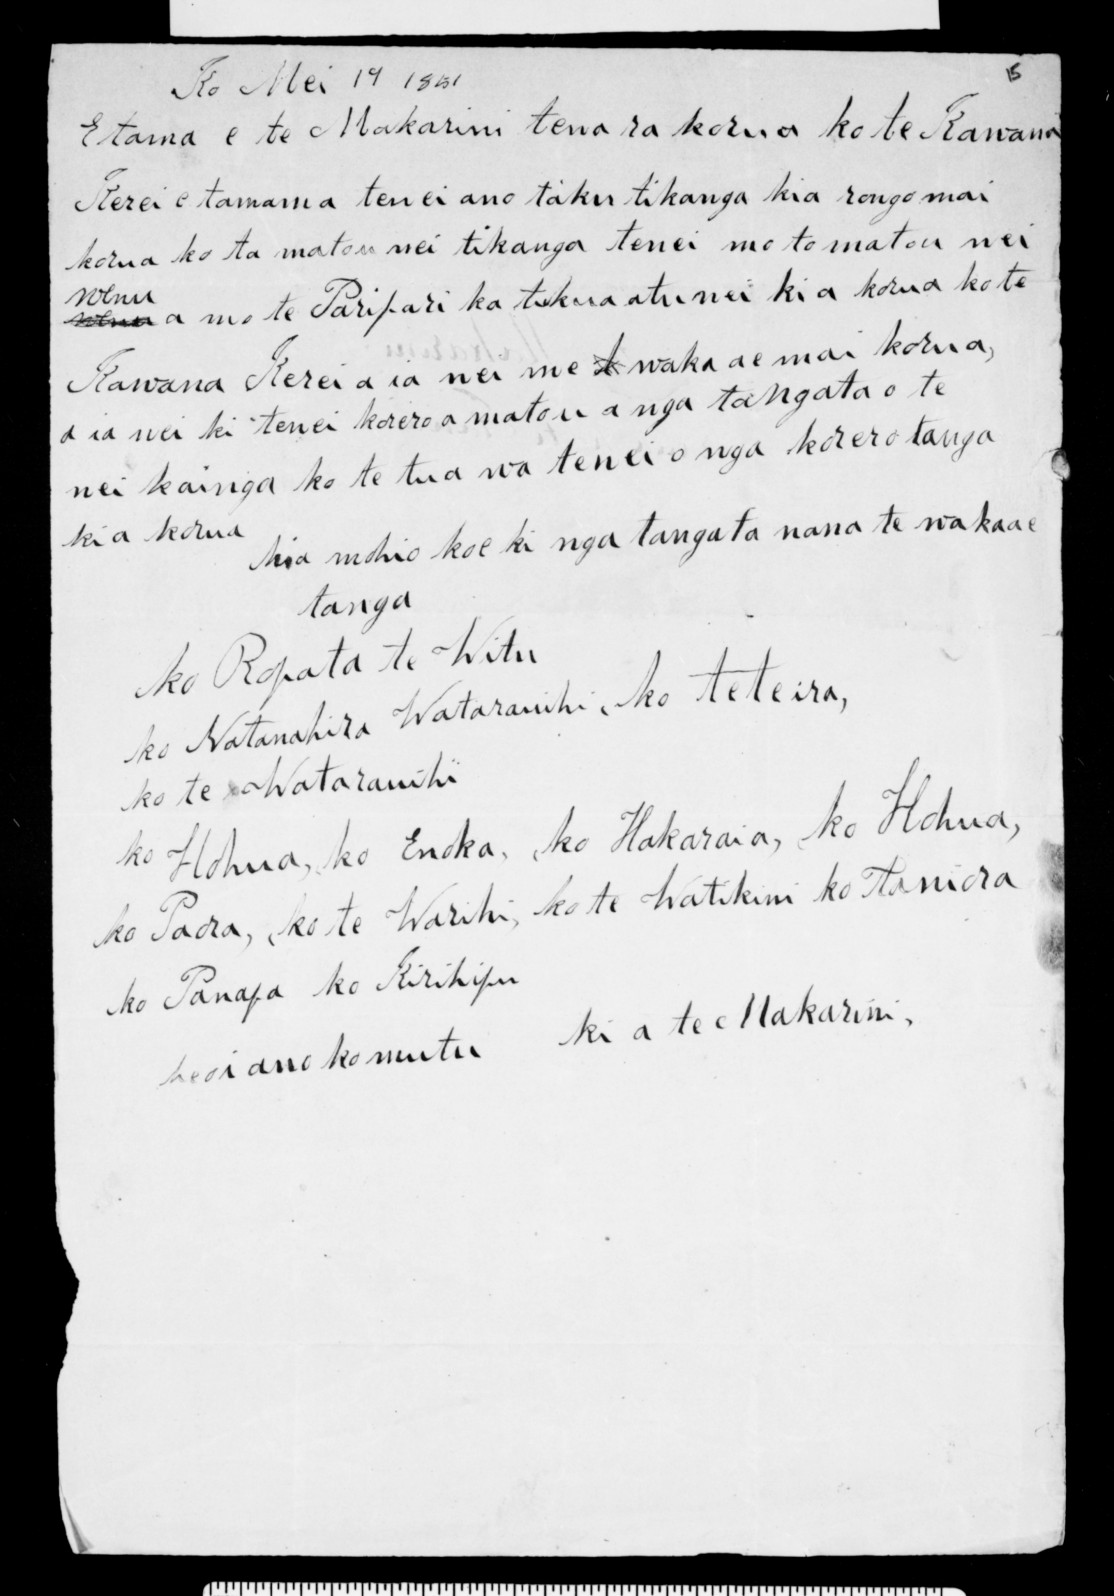 15
Ko Mei 19 1851
E tama e te Makarini tena ra korua ko te Kawana
Kerei e tamama tenei ano taku tikanga kia rongo mai
korua ko ta matou nei tikanga tenei mo to matou nei
wenu
a mo te Paripari ka tukua atu nei ki a korua ko te
Kawana Kerei a ia nei me waka ae mai korua,
a ia nei ki tenei korero a matou a nga tangata o te
nei kainga ko te tua wa tenei o nga korero tanga
ki a korua
kia mohio koe ki nga tangata nana te wakaae
tanga
ko Ropata te Witu
ko Natanahira Watarauihi, ko teteira,
ko te Watarauihi
ko Hohua, ko Enoka, ko Hakaraia, ko Hohua,
ko Paora, ko te Warihi, ko te Watikini ko Taniora
ko Panapa ko Kirihipu
heoi ano ko mutu ki a te Makarini,